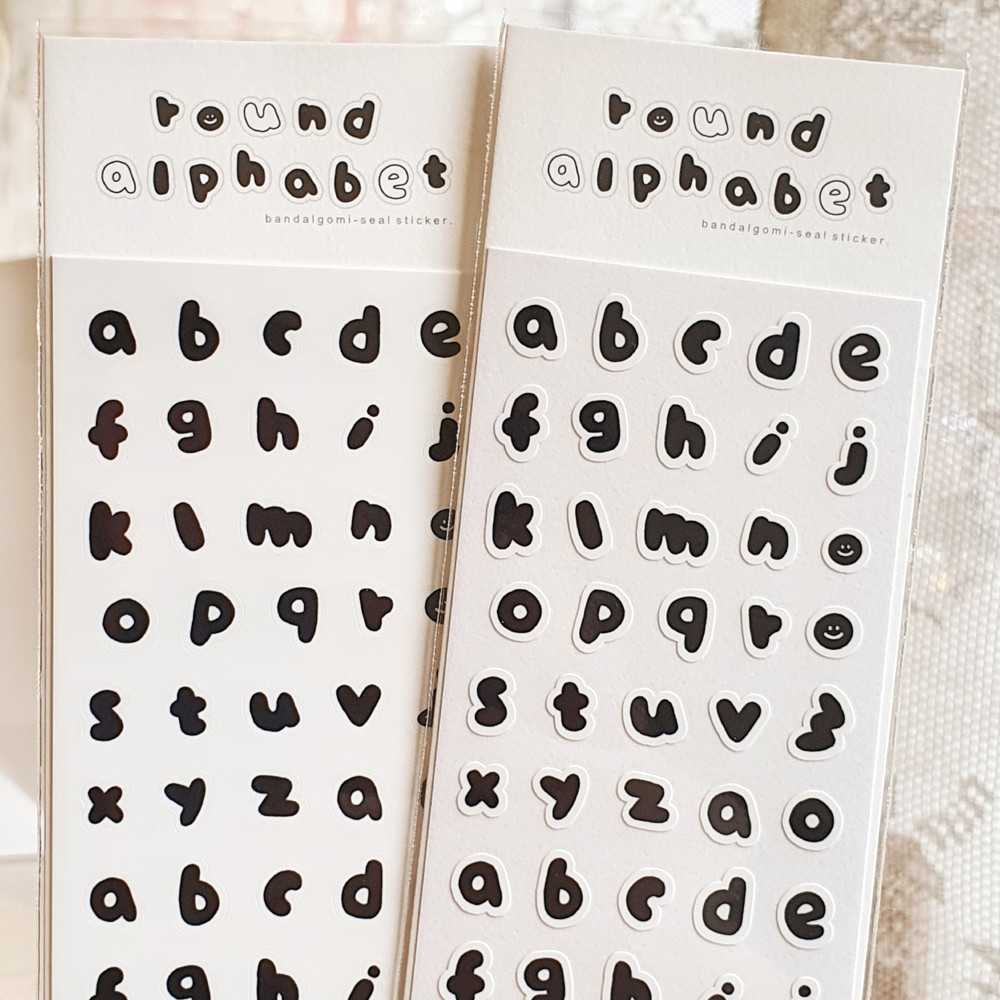 round
alphabet
bandalgomi-seal sticker.
a b c d e
f g h i j
k l m n
o p q r
s t u v
x y z a
a b c d
f g h i
round
alphabet
bandalgomi-seal sticker.
a b c d e
f g h i j
k l m n
o p q r
s t u v w
x y z a o
a b c d e
f g h i j